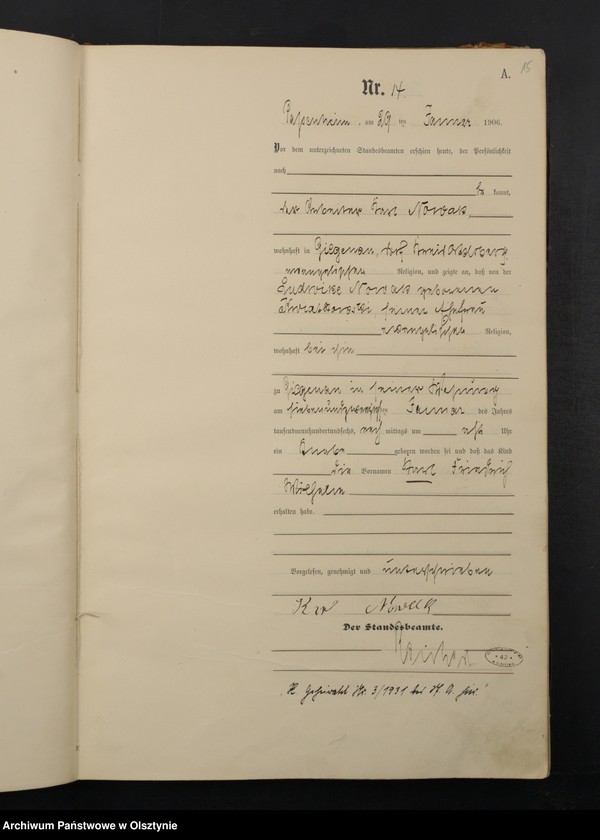 A. 15
Nr. 14
am 29 ten Januar 1906.
Vor dem unterzeichneten Standesbeamten erschien heute, der Persönlichkeit
nach
be kannt,
der Arbeiter Karl Nowak,
wohnhaft in Gilgenau,
evangelischen Religion, und zeigte an, daß von der
Ludwike Nowak geborenen
seiner Ehefrau
evangelischen Religion,
wohnhaft bei ihm
zu Gilgenau in seiner Wohnung
am siebenundzwanzigsten Januar des Jahres
tausendneunhundertundsechs, nach mittags um elf Uhr
ein Knabe geboren worden sei und daß das Kind
die Vornamen Karl Friedrich
Wilhelm
erhalten habe.
Vorgelesen, genehmigt und unterschrieben
Karl Nowak
Der Standesbeamte.
Nr. 3/1931
Archiwum Państwowe w Olsztynie